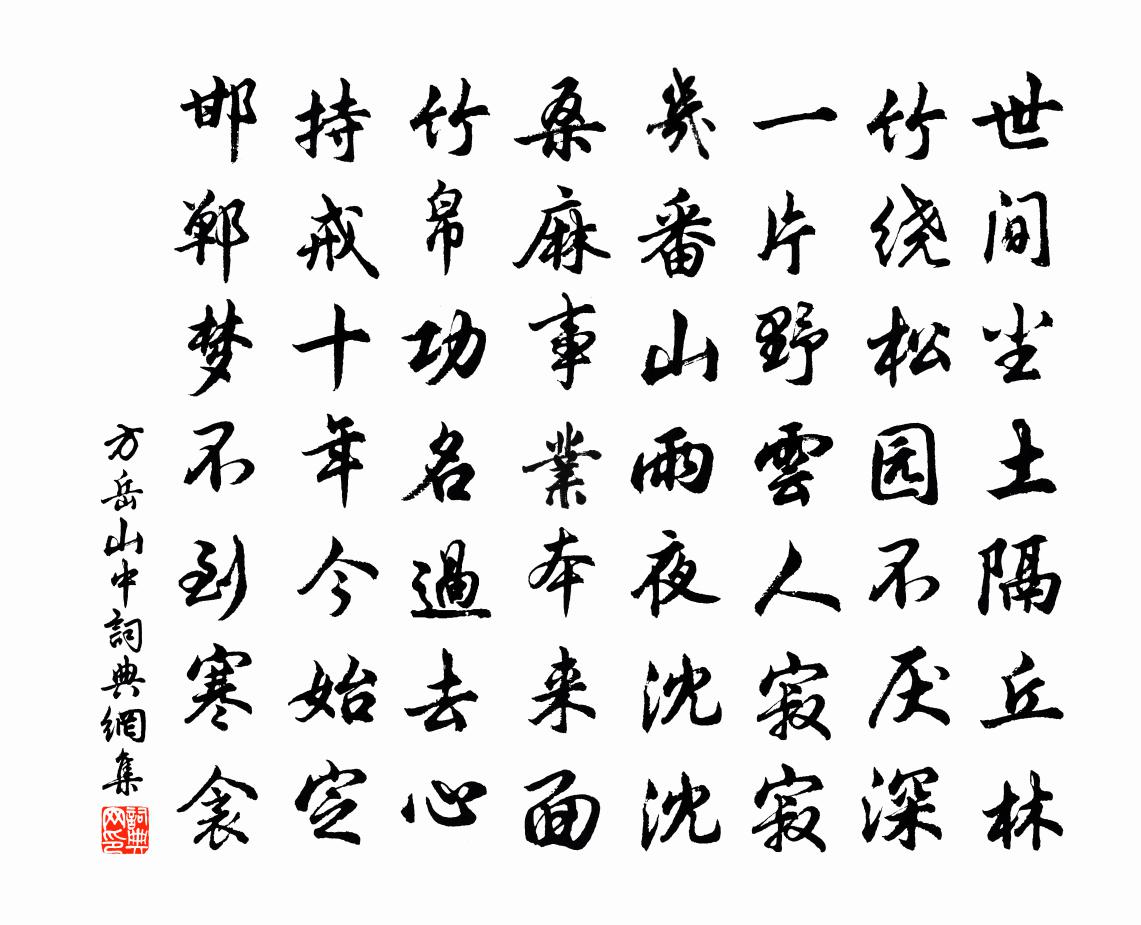 世间尘土隔丘林
竹绕松园不厌深
一片野雲人寂寂
幾番山雨夜沈沈
桑麻事業本来面
竹帛功名過去心
持戒十年今始定
邯郸梦不到寒衾
方岳山中詞典網集
詞典网印